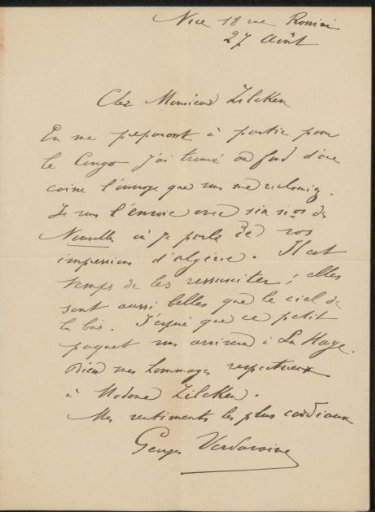 Nice 18 rue Rossini
27 Août
Cher Monsieur Zilcken
En me préparant à partir pour
le Congo j'ai trouvé au fond d'une
caisse l'ouvrage que vous me réclamiez.
Je vous l'envoie avec six nos de
Nouvelles où je parle de vos
impressions d'algérie. Il est
temps de les ressusciter ; elles
sont aussi belles que le ciel de
là bas. J'espère que ce petit
paquet vous arrivera à La Haye.
Bien mes hommages respectueux
à Madame Zilcken.
Mes sentiments les plus cordiaux
Georges